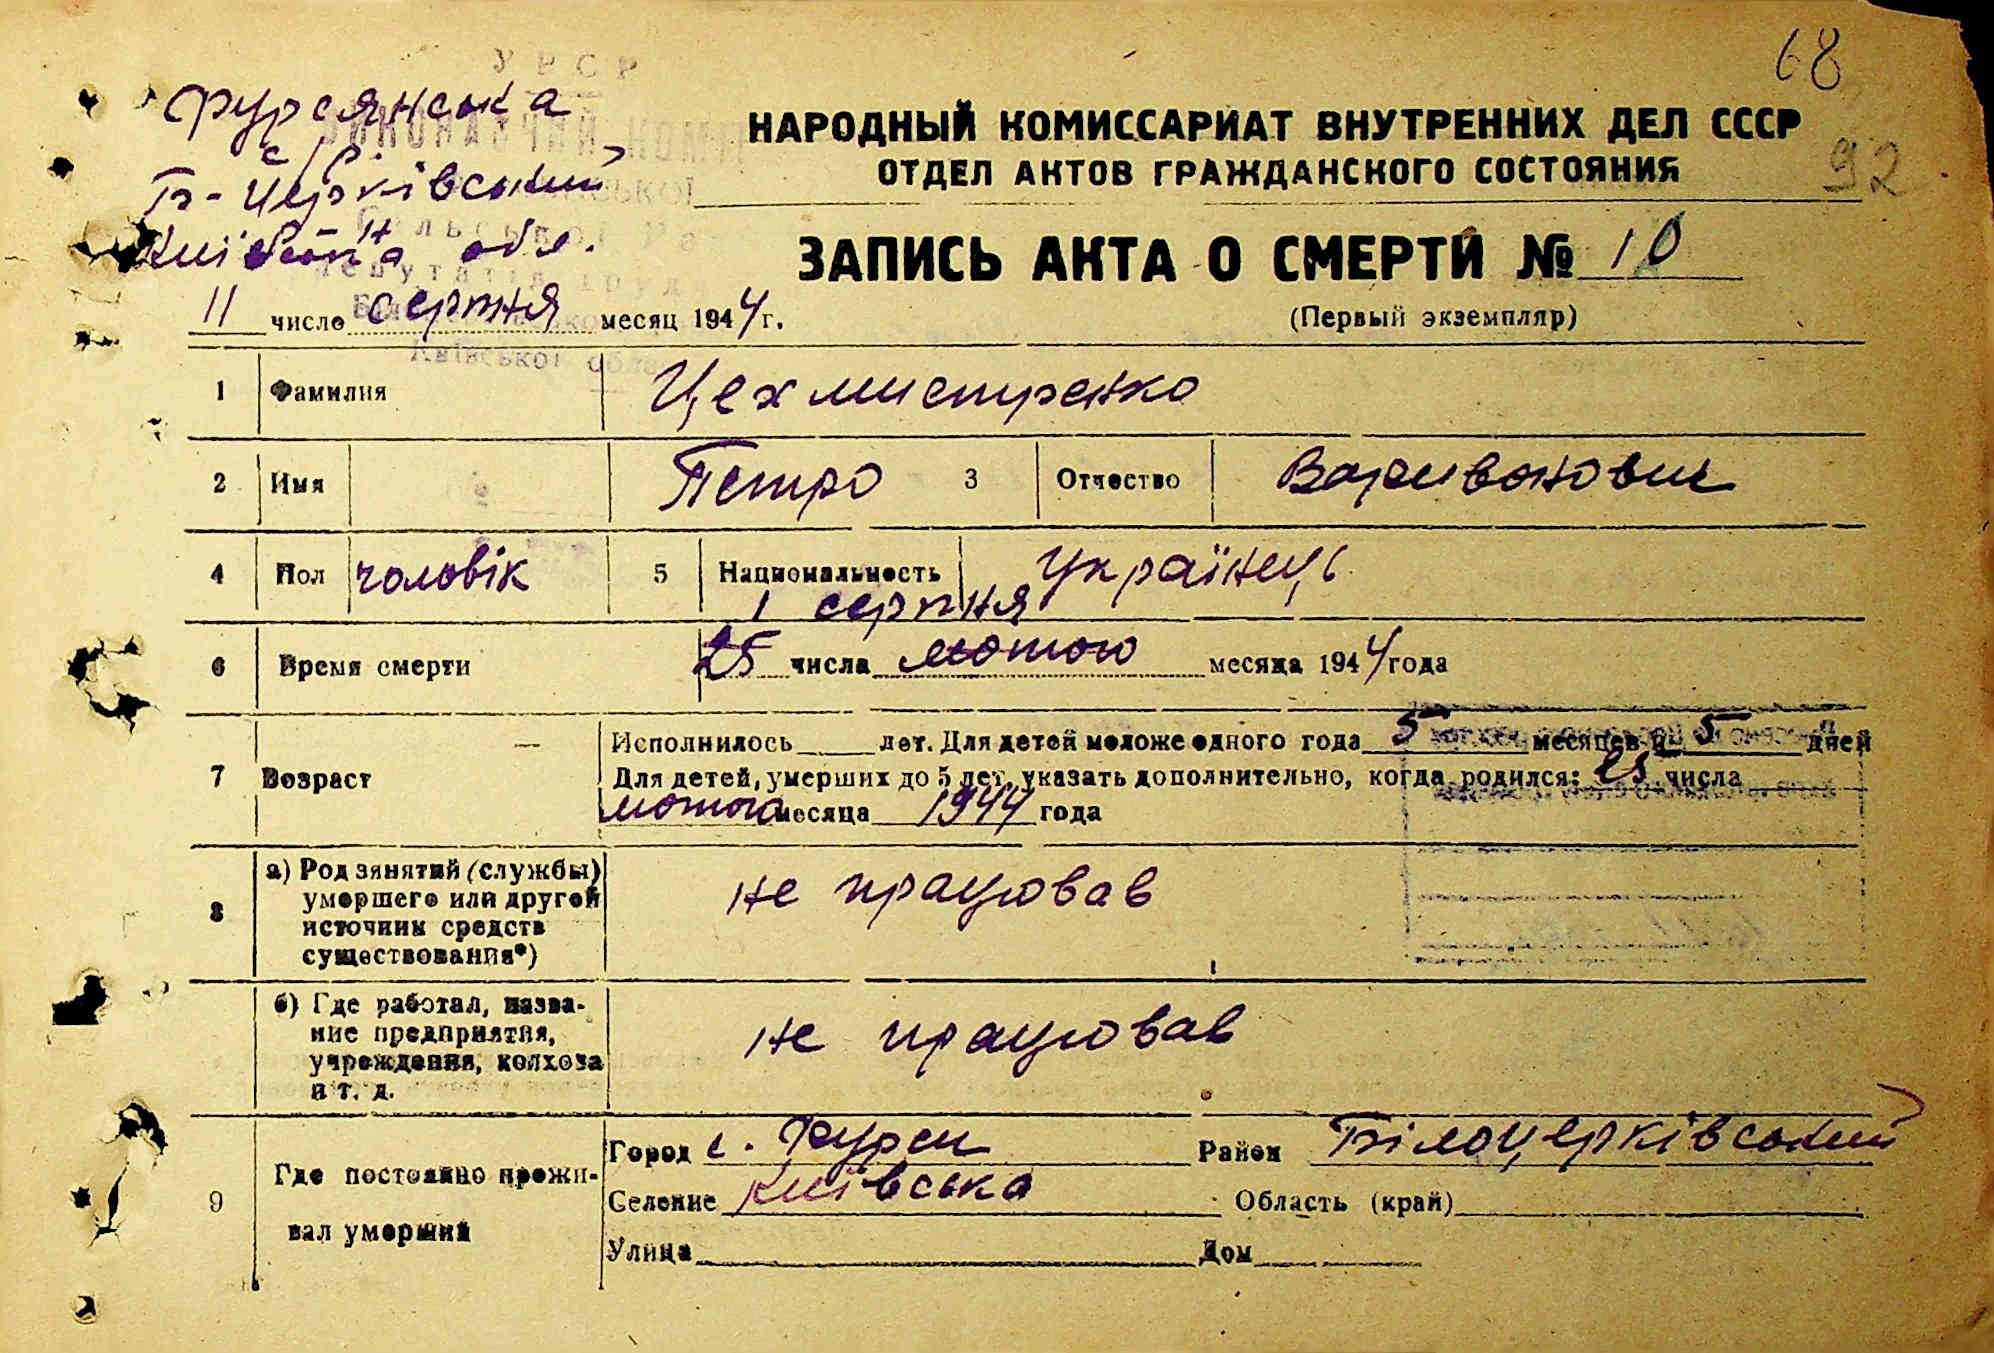 68
Фурсянська
с/р
Б-Церківський
Київська обл.
НАРОДНЫЙ КОМИССАРИАТ ВНУТРЕННИХ ДЕЛ СССР
ОТДЕЛ АКТОВ ГРАЖДАНСКОГО СОСТОЯНИЯ
92
ЗАПИСЬ АКТА О СМЕРТИ № 10
11 число серпня месяц 1944 г.
(Первый экземпляр)
1 Фамилия Цехмистренко
2 Имя Петро 3 Отчество Вариванович
4 Пол чоловік 5 Национальность Українець
1 серпня
6 Время смерти 25 числа лютого месяца 1944 года
7 Возраст — Исполнилось лет. Для детей моложе одного года 5 месяцев и 5 дней
Для детей, умерших до 5 лет, указать дополнительно, когда родился: 25 числа
лютого месяца 1944 года
8 а) Род занятий (службы)
умершего или другой
источник средств
существования*)
не працював
б) Где работал, назва-
ние предприятия,
учреждения, колхоза
и т. д.
не працював
9 Где постоянно прожи-
вал умерший
Город с. Фурси Район Білоцерківський
Селение Київська Область (край)
Улица Дом